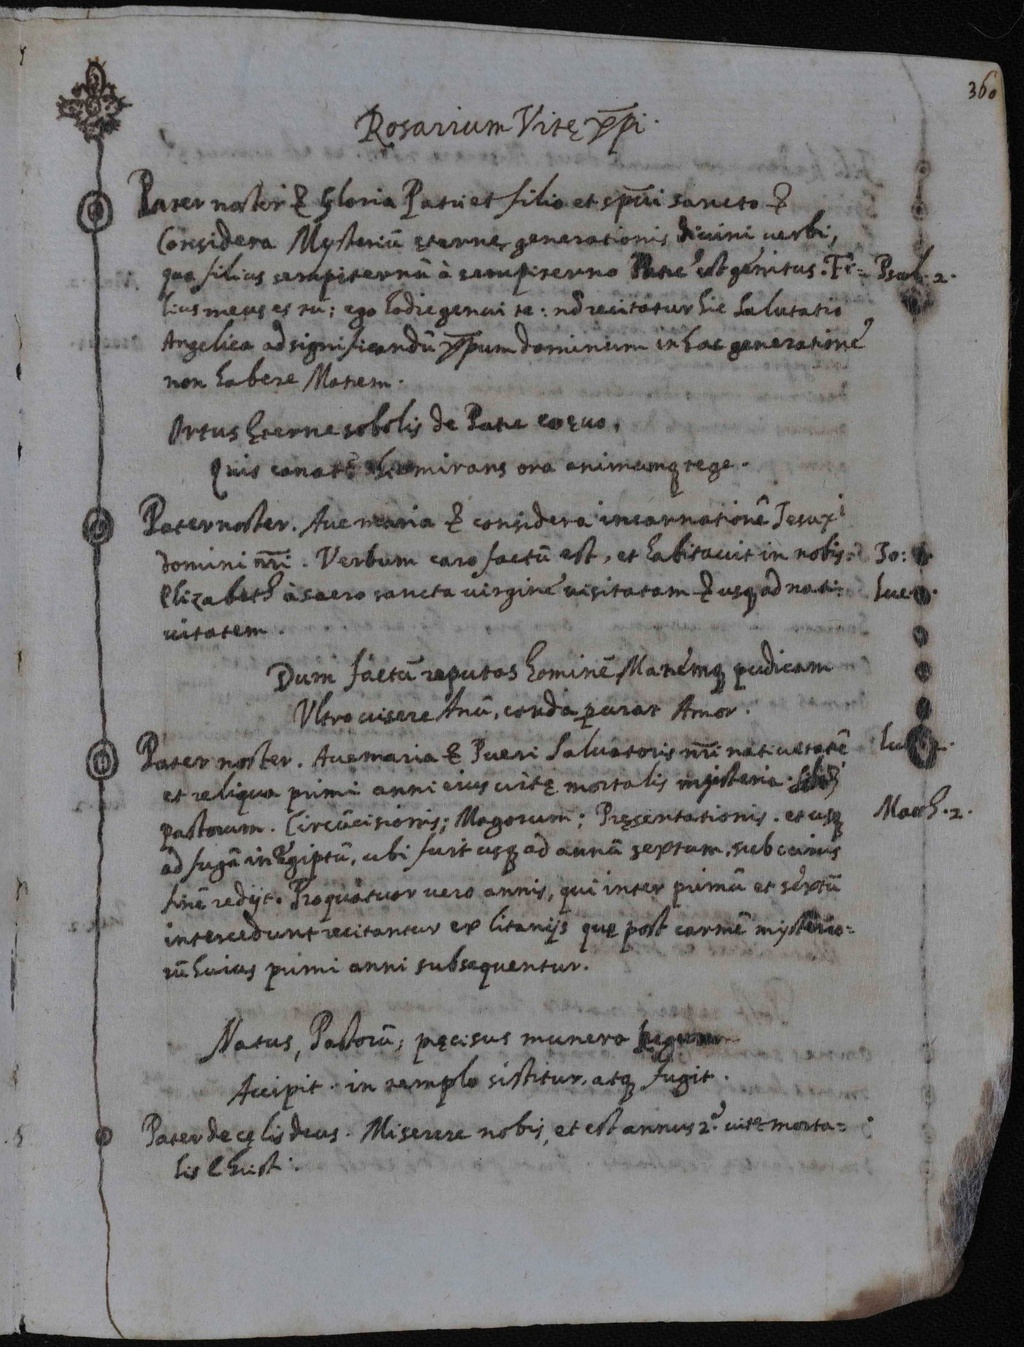 360
Rosarium Vitę xp̄i.
Pater noster & Gloria Patri et filio et sp̄ui sancto &
Considera Mysteriū ęternę generationis diuini uerbi,
qua filius sempiternū à sempiterno Patre est genitus. Fi= Psal. 2.
lius meus es tu; ego hodie genui te: nō recitatur hic Salutatio
Angelica ad significandū xp̄um dominum in hac generatione
non habere Matrem.
Ortus ęterne sobolis de Patre coęuo,
Quis canat mirans ora animumq rege.
Pater noster. Aue maria & considera incarnationē Jesu xi
domini nr̄i. Verbum caro factū est, et habitauit in nobis. Jo:
Elizabeth à sacro sancta uirgine uisitatam & usq ad nati= Luc
uitatem.
Dum factū reputas hominē, Matremq pudicam
Vltro uisere Anū, corda parat Amor.
Pater noster. Aue maria & Pueri Saluatoris nr̄i natiuitatē
et reliqua primi anni eius uitę mortalis mysteria.
pastorum. Circūcisionis; Magorum; Pręsentationis. et usq Matth. 2.
ad fugā in Ęgiptū, ubi fuit usq ad annū septum, sub cuius
finē redijt. Pro quatuor uero annis, qui inter primū et sextū
intercedunt recitantur ex litanijs quę post carmē mysterio=
rū huius primi anni subsequentur.
Natus, Pastorū, pręcisus munera
Accipit. in templo sistitur. atq fugit.
Pater de cęlis deus. Miserere nobis, et est annus 2.º uitę morta=
lis Christi.